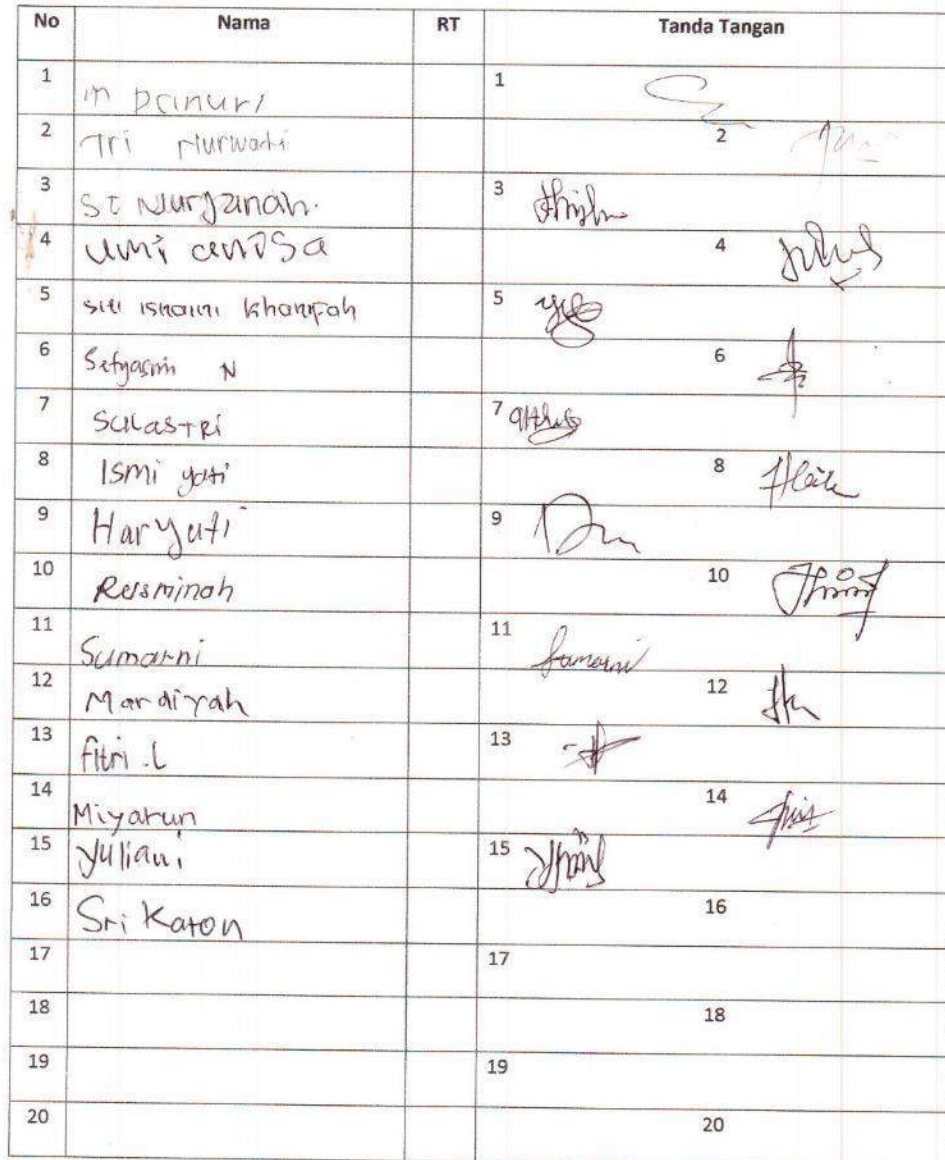 No Nama RT Tanda Tangan
1 m Danuri 1
2 Tri Nurwati 2
3 St Nurjanah. 3
4 umi anisa 4
5 siti isnaini khanifah 5
6 Setyasmi N 6
7 Sulastri 7
8 Ismi yati 8
9 Haryati 9
10 Rusminah 10
11 Sumarni 11 Sumarni
12 Mardiyah 12
13 fitri . L 13
14 Miyarun 14
15 Yuliani 15
16 Sri Katon 16
17 17
18 18
19 19
20 20